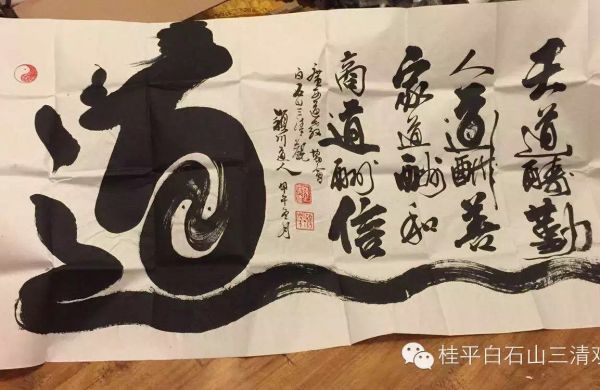 天道酬勤
人道酬善
家道酬和
商道酬信
白石山三清觀
穎川道人
甲午
道
桂平白石山三清观